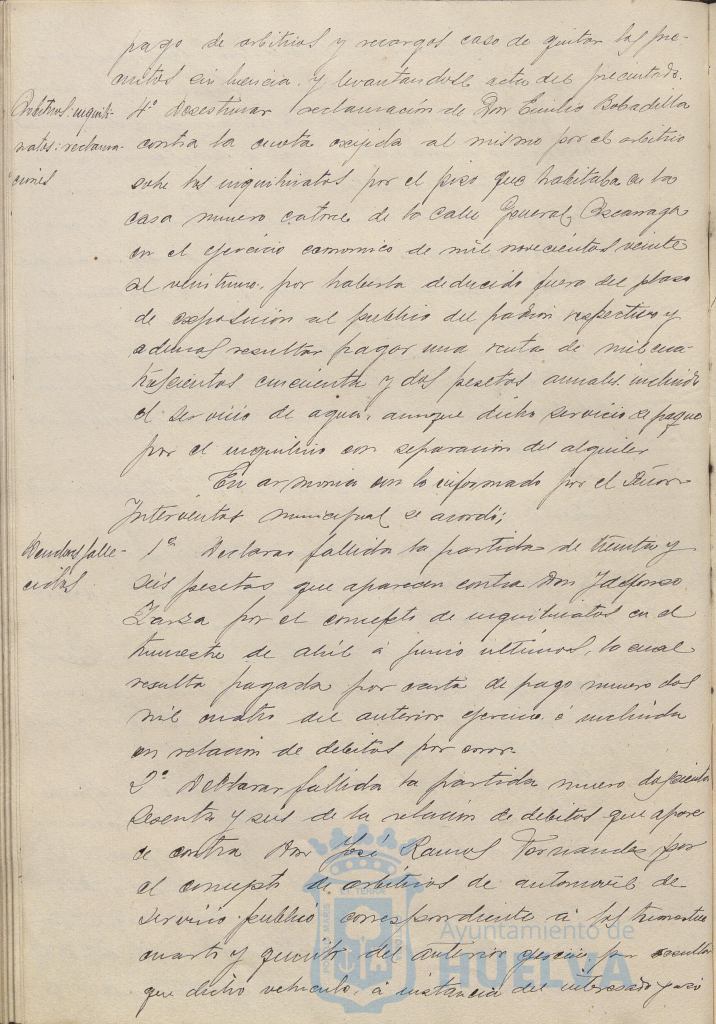 pago de arbitrios y recargos caso de quitar los pre-
cintos sin licencia y levantandose acta del precintado.
Arbitrios: inquili-
natos: reclama-
ciones
4º Desestimar reclamación de Don Emilio Bobadilla
contra la cuota exijida al mismo por el arbitrio
sobre los inquilinatos por el piso que habitaba en la
casa numero catorce de la calle General Azcarraga
en el ejercicio economico de mil novecientos veinte
al veintiuno, por haberla deducido fuera del plazo
de exposición al publico del padron respectivo y
ademas resultar pagar una renta de mil cua-
trescientas cincuenta y dos pesetas anuales incluido
el servicio de agua, aunque dicho servicio se pague
por el inquilino con separacion del alquiler
En armonia con lo informado por el Señor
Interventor municipal se acordó;
Deudas falle-
cidas
1º Declarar fallida la partida de treinta y
seis pesetas que aparecen contra Don Ildefonso
Zarza por el concepto de inquilinatos en el
trimestre de abril á junio ultimos, la cual
resulta pagada por carta de pago numero dos
mil cuatro del anterior ejercicio é incluida
en relacion de debitos por error
2º Declarar fallida la partida numero doscientos
sesenta y seis de la relacion de debitos que apare
ce contra Don José Ramos Fernandez por
el concepto de arbitrios de automovil de
servicio publico correspondiente á los trimestres
cuarto y quinto del anterior ejercicio, por resultar
que dicho vehiculo, á instancia del interesado y asi
Ayuntamiento de
HUELVA